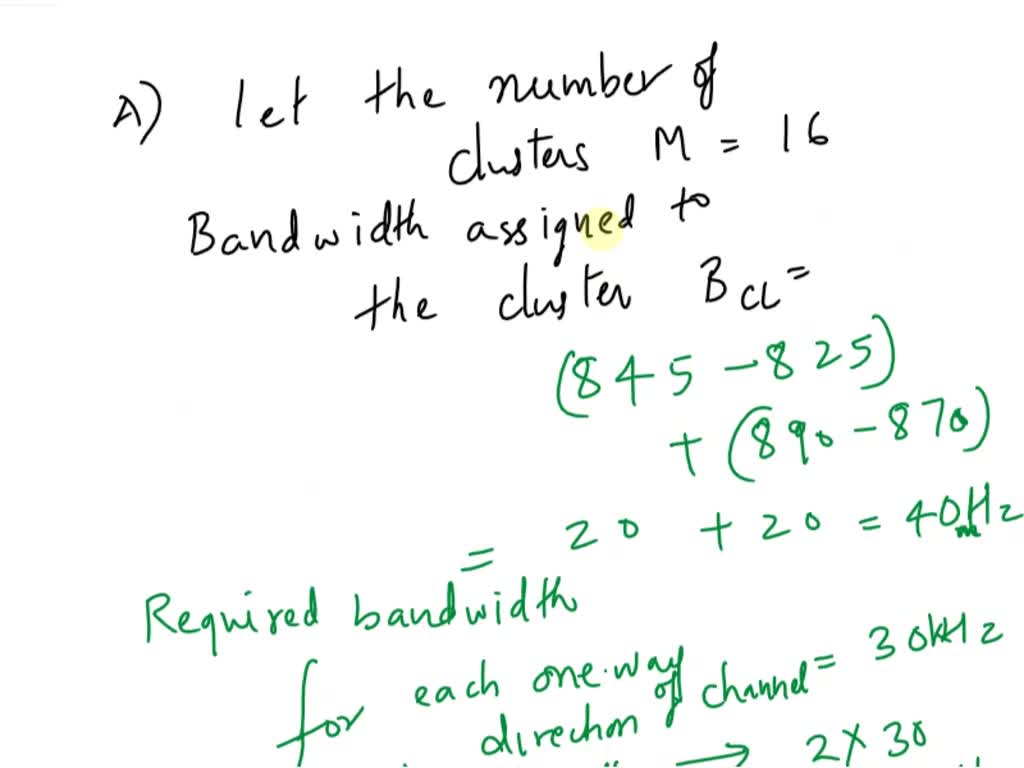 A) let the number of
clusters M = 16
Bandwidth assigned to
the cluster BCL =
(845 - 825)
+ (890 - 870)
= 20 + 20 = 40MHz
Required bandwidth
for each one-way direction of channel = 30kHz
→ 2 X 30